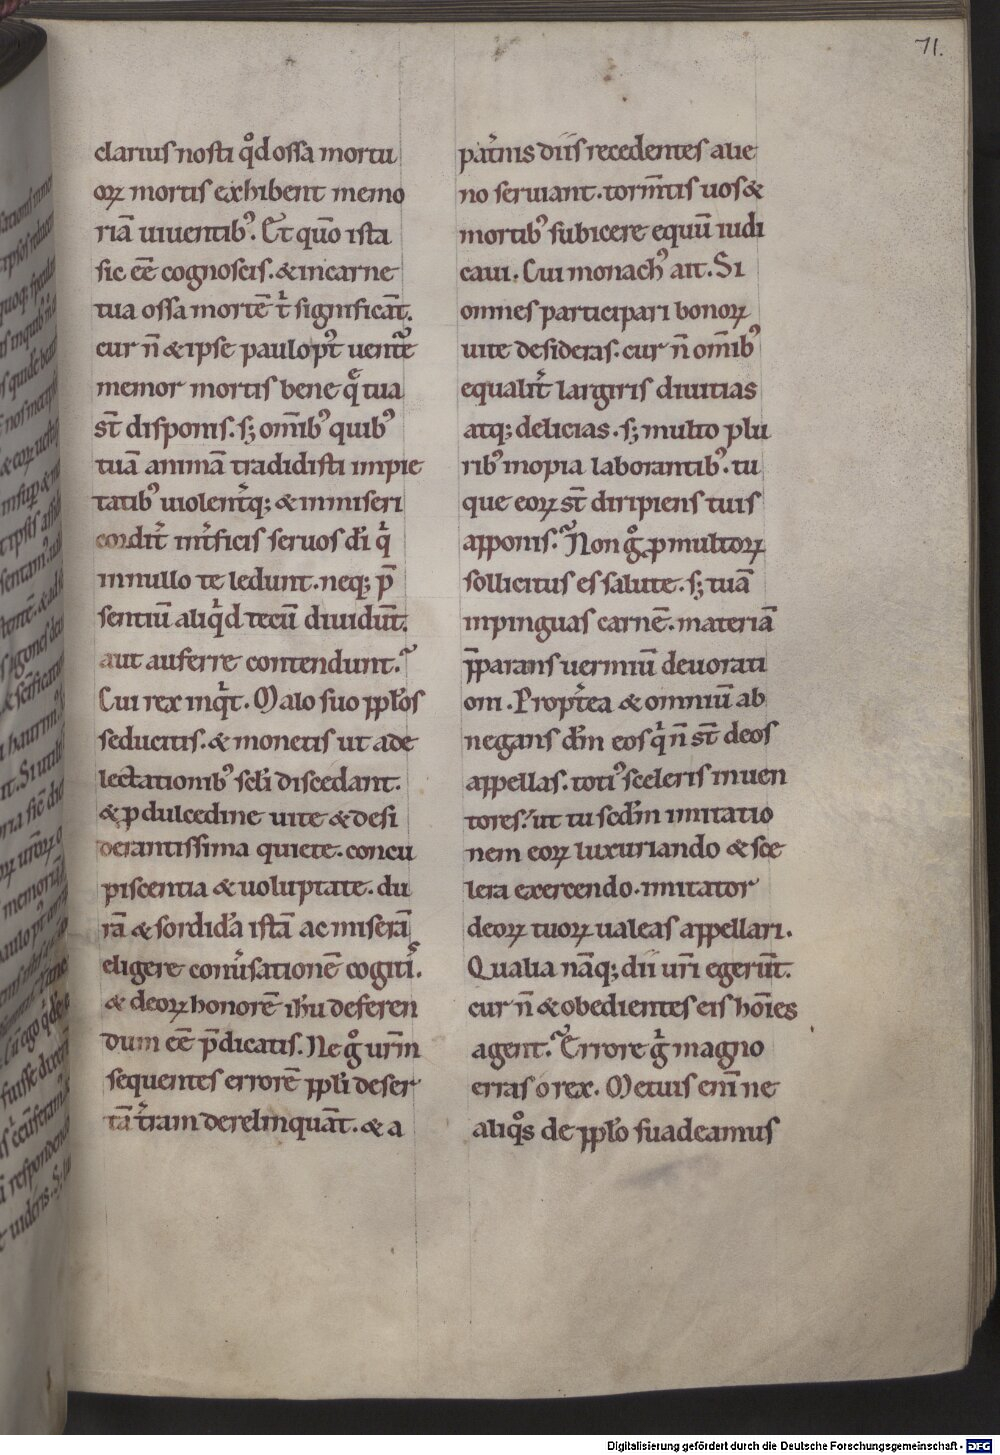 71.
clarius nosti qͦd ossa mortu
oꝝ mortis exhibent memo
riā uiuentib᷒. Et qūo ista
sic eē cognoscis. & incarne
tua ossa mortē t̾ significāt.
cur n̄ & ipse paulo pt̾ uentē
memor mortis bene q̄ tua
st̄ disponis. s; om̄ib᷒ quib᷒
tuā animā tradidisti impie
tatib᷒ uiolent̾q; & inmiseri
cordit̾ int̾ficis seruos dī qͥ
innullo te ledunt. neq; p̄
sentiū aliqͥd tecū diuidūt.
aut auferre contendunt.
Cui rex inqͥt. Malo suo ppl̄os
seducitis. & monetis ut a de
lectationib᷒ scl̄i discedant.
& ꝑ dulcedine uite & desi
derantissima quiete. concu
piscentia & uoluptate. du
rā & sordidā istā ac miserā
eligere conu̾sationē cogitis.
& deoꝝ honorē ihu deferen
dum eē p̄dicatis. Ne gͦ ur̄m
sequentes errorē ppl̄i deser
tā t̾ram derelinquāt. & a
pat̾nis diis recedentes alie
no seruiant. torm̄tis uos &
mortib᷒ subicere equū iudi
caui. Cui monach᷒ ait. Si
omnes participari bonoꝝ
uite desideras. cur n̄ om̄ib᷒
equalit̾ largiris diuitias
atq; delicias. s; multo plu
rib᷒ inopia laborantib᷒. tu
que eoꝝ st̄ diripiens tuis
apponis. Non gͦ ꝑ multoꝝ
sollicitus es salute. s; tuā
inpinguas carnē. materiā
p̄parans uermiū deuorati
oni. Propt̾ea & omniū ab
negans dm̄ eos qͥ n̄ st̄ deos
appellas. toti᷒ sceleris inuen
tores. ut tu scdm̄ imitatio
nem eoꝝ luxuriando & sce
lera exercendo. imitator
deoꝝ tuoꝝ ualeas appellari.
Qualia nāq; dii ur̄i egerūt.
cur n̄ & obedientes eis hōies
agent. Errore gͥ magno
erras o rex. Metuis enī ne
aliqͦs de ppl̄o suadeamus
Digitalisierung gefördert durch die Deutsche Forschungsgemeinschaft - DFG